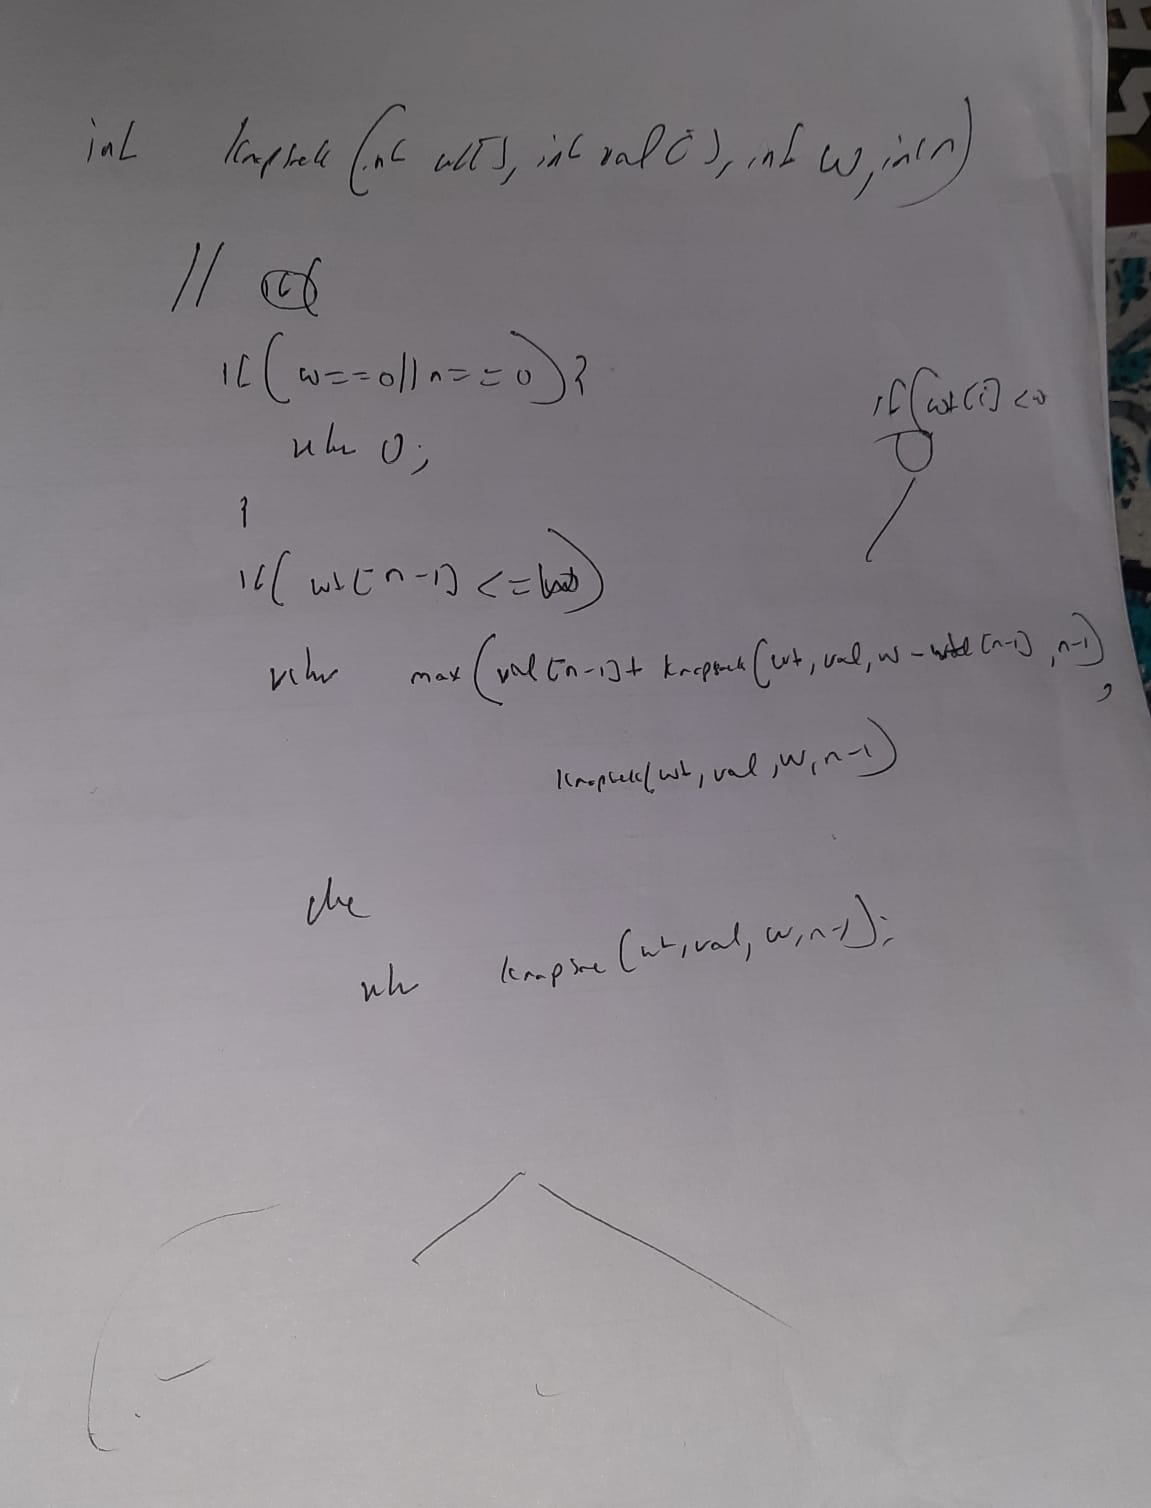 int knapsack (int wt[], int val[], int w, int n)
//
if (w==0||n==0){
if (wt[i] <w
return 0;
}
if( wt[n-1] <= )
return max (val[n-1]+ knapsack (wt, val, w - [n-1], n-1),
knapsack(wt, val, w, n-1)
else
return knapsack (wt, val, w, n-1);